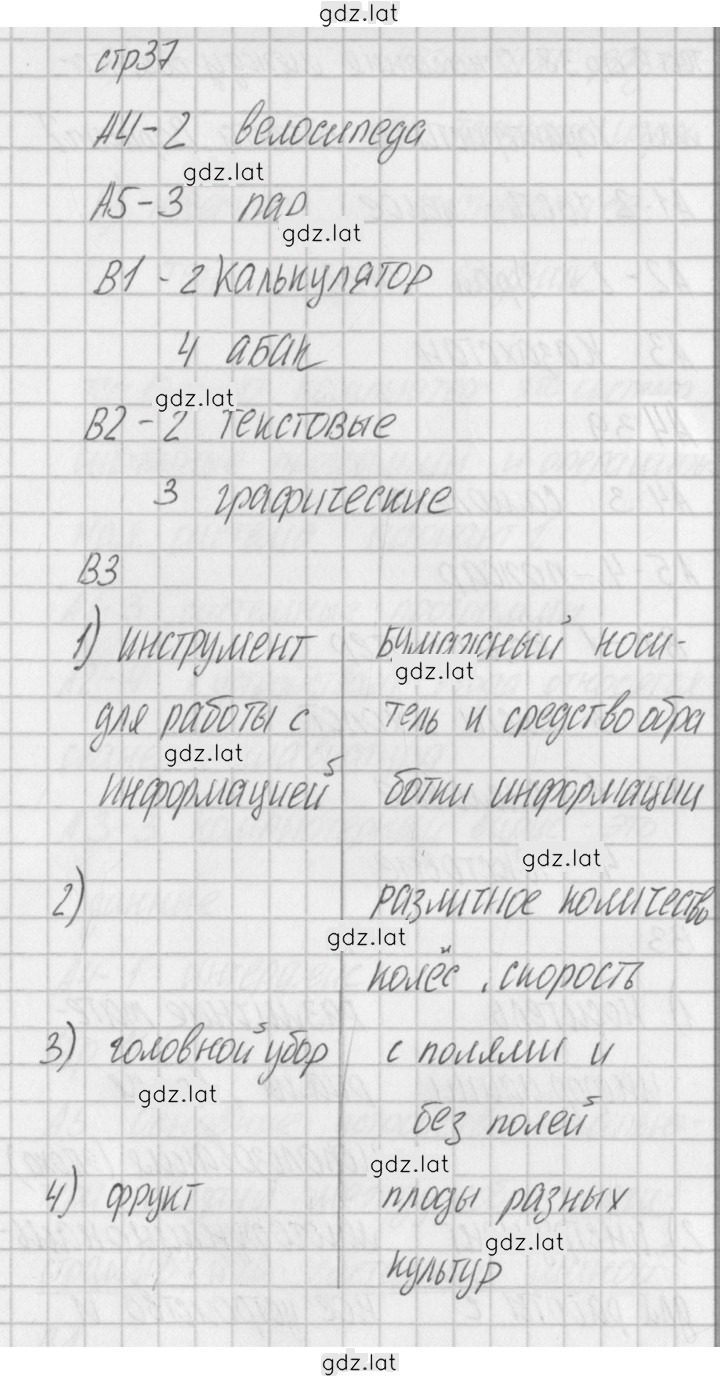 gdz.lat
стр37
А4-2 велосипеда
gdz.lat
А5-3 пар
gdz.lat
В1 - 2 калькулятор
4 абак
gdz.lat
В2-2 текстовые
3 графические
В3
1) инструмент бумажный носи-
gdz.lat
для работы с тель и средство обра
gdz.lat
информацией ботки информации
gdz.lat
2) различное количество
gdz.lat
колёс, скорость
3) головной убор с полями и
gdz.lat
без полей
gdz.lat
4) фрукт плоды разных
gdz.lat
культур
gdz.lat